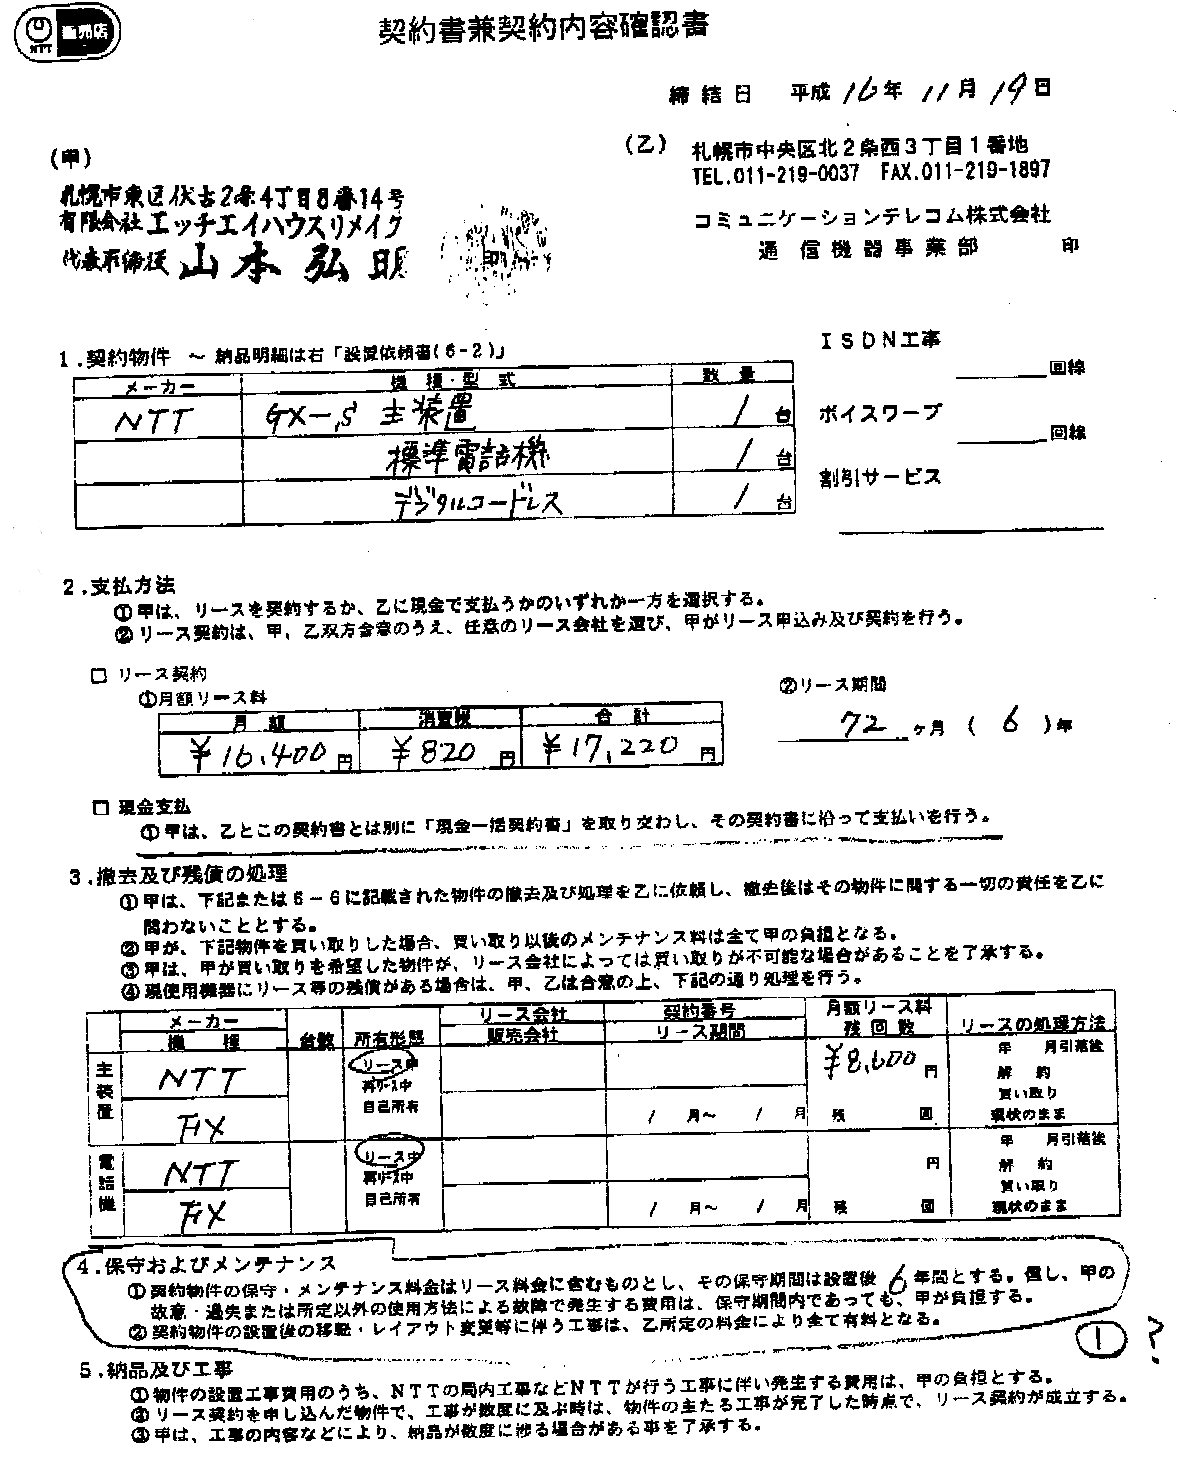 NTT 販売店
契約書兼契約内容確認書
締結日 平成 16年 11月 19日
(甲)
札幌市東区伏古2条4丁目8番14号
有限会社エッチエイハウスリメイク
代表取締役 山本弘明
印
(乙) 札幌市中央区北2条西3丁目1番地
TEL.011-219-0037 FAX.011-219-1897
コミュニケーションテレコム株式会社
通信機器事業部 印
1.契約物件 ～ 納品明細は右「設置依頼書(6-2)」
メーカー 機種・型式 数量
NTT GX-S 主装置 1台
標準電話機 1台
デジタルコードレス 1台
ISDN工事
回線
ボイスワープ
回線
割引サービス
2.支払方法
①甲は、リースを契約するか、乙に現金で支払うかのいずれか一方を選択する。
②リース契約は、甲、乙双方合意のうえ、任意のリース会社を選び、甲がリース申込み及び契約を行う。
□ リース契約
①月額リース料
月額 消費税 合計
¥16,400円 ¥820円 ¥17,220円
②リース期間
72ヶ月 (6)年
□ 現金支払
①甲は、乙とこの契約書とは別に「現金一括契約書」を取り交わし、その契約書に沿って支払いを行う。
3.撤去及び残債の処理
①甲は、下記または6-6に記載された物件の撤去及び処理を乙に依頼し、撤去後はその物件に関する一切の責任を乙に
問わないこととする。
②甲が、下記物件を買い取りした場合、買い取り以後のメンテナンス料は全て甲の負担となる。
③甲は、甲が買い取りを希望した物件が、リース会社によっては買い取りが不可能な場合があることを了承する。
④現使用機器にリース等の残債がある場合は、甲、乙は合意の上、下記の通り処理を行う。
メーカー 機種 台数 所有形態 リース会社 販売会社 契約番号 リース期間 月額リース料 残回数 リースの処理方法
主装置 NTT リース中 ¥8,600円 年 月引落後
再リース中 解約
自己所有 買い取り
FX / 月～ / 月 残 回 現状のまま
電話機 NTT リース中 円 年 月引落後
再リース中 解約
自己所有 買い取り
FX / 月～ / 月 残 回 現状のまま
4.保守およびメンテナンス
①契約物件の保守・メンテナンス料金はリース料金に含むものとし、その保守期間は設置後 6年間とする。但し、甲の
故意・過失または所定以外の使用方法による故障で発生する費用は、保守期間内であっても、甲が負担する。
②契約物件の設置後の移転・レイアウト変更等に伴う工事は、乙所定の料金により全て有料となる。
① ?
5.納品及び工事
①物件の設置工事費用のうち、NTTの局内工事などNTTが行う工事に伴い発生する費用は、甲の負担とする。
②リース契約を申し込んだ物件で、工事が数度に及ぶ時は、物件の主たる工事が完了した時点で、リース契約が成立する。
③甲は、工事の内容などにより、納品が数度に渉る場合がある事を了承する。